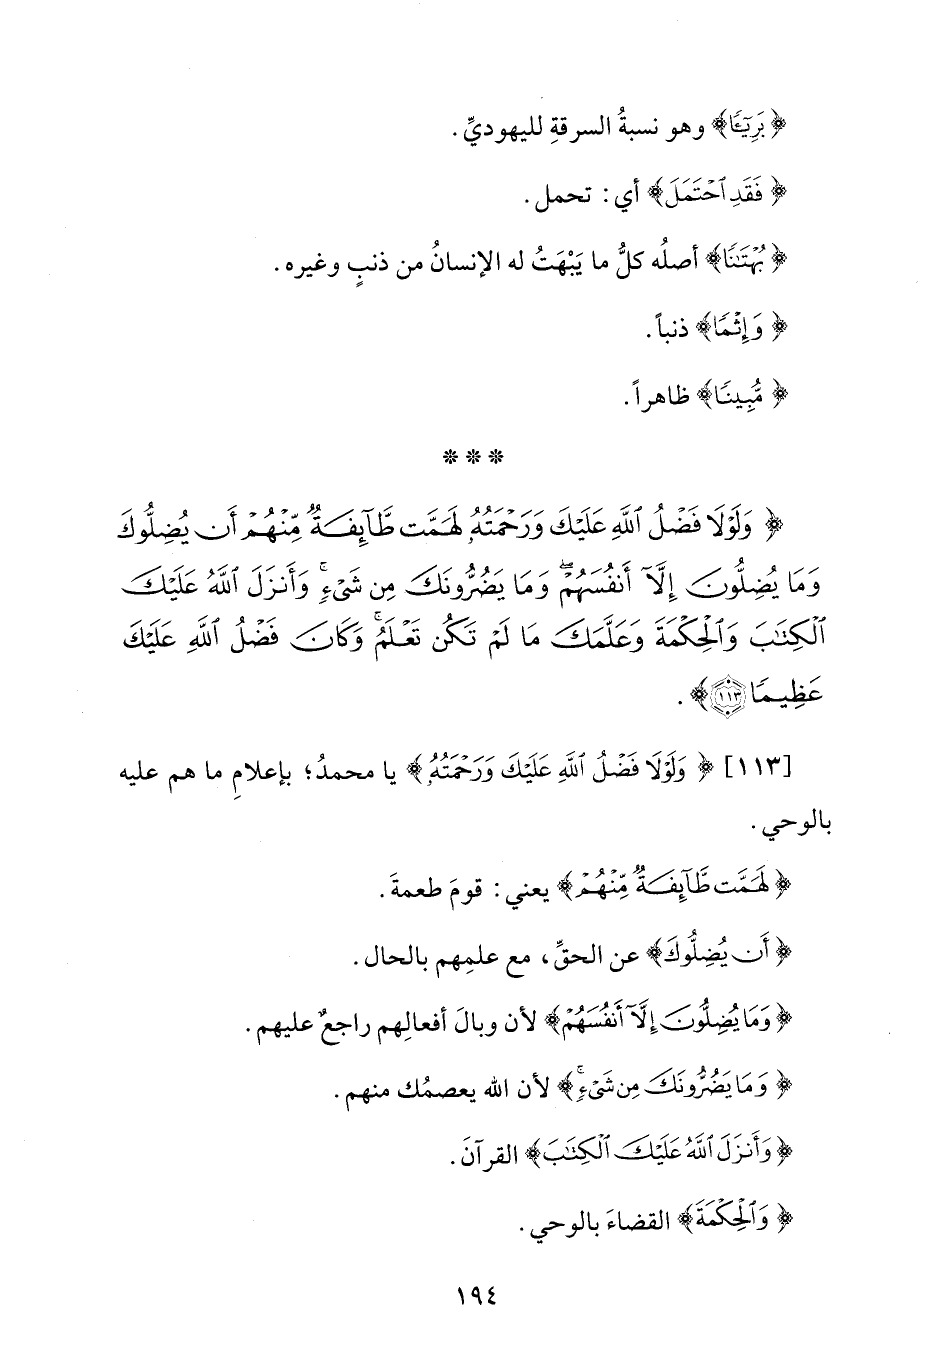 ﴿بَرِيٓـًٔا﴾ وهو نسبةُ السرقةِ لليهوديِّ.
﴿فَقَدِ ٱحْتَمَلَ﴾ أي: تحمل.
﴿بُهْتَٰنًا﴾ أصلُه كلُّ ما يَبْهَتُ له الإنسانُ من ذنبٍ وغيره.
﴿وَإِثْمًا﴾ ذنباً.
﴿مُّبِينًا﴾ ظاهراً.
* * *
﴿وَلَوْلَا فَضْلُ ٱللَّهِ عَلَيْكَ وَرَحْمَتُهُۥ لَهَمَّت طَّآئِفَةٌ مِّنْهُمْ أَن يُضِلُّوكَ
وَمَا يُضِلُّونَ إِلَّآ أَنفُسَهُمْ ۖ وَمَا يَضُرُّونَكَ مِن شَىْءٍ ۚ وَأَنزَلَ ٱللَّهُ عَلَيْكَ
ٱلْكِتَٰبَ وَٱلْحِكْمَةَ وَعَلَّمَكَ مَا لَمْ تَكُن تَعْلَمُ ۚ وَكَانَ فَضْلُ ٱللَّهِ عَلَيْكَ
عَظِيمًا ١١٣﴾.
[١١٣] ﴿وَلَوْلَا فَضْلُ ٱللَّهِ عَلَيْكَ وَرَحْمَتُهُۥ﴾ يا محمدُ؛ بإعلامِ ما هم عليه
بالوحي.
﴿لَهَمَّت طَّآئِفَةٌ مِّنْهُمْ﴾ يعني: قومَ طعمةَ.
﴿أَن يُضِلُّوكَ﴾ عن الحقِّ، مع علمِهم بالحال.
﴿وَمَا يُضِلُّونَ إِلَّآ أَنفُسَهُمْ﴾ لأن وبالَ أفعالِهم راجعٌ عليهم.
﴿وَمَا يَضُرُّونَكَ مِن شَىْءٍ ۚ﴾ لأن الله يعصمُك منهم.
﴿وَأَنزَلَ ٱللَّهُ عَلَيْكَ ٱلْكِتَٰبَ﴾ القرآنَ.
﴿وَٱلْحِكْمَةَ﴾ القضاءَ بالوحي.
١٩٤